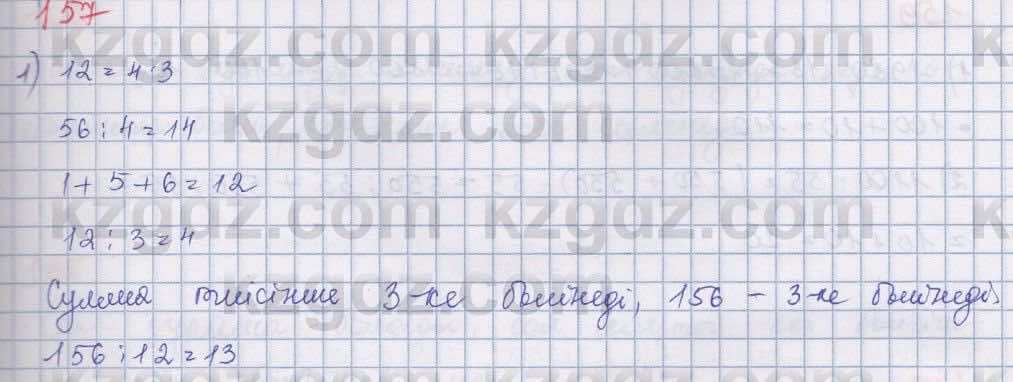 157
1) 12 = 4·3
56 : 4 = 14
1 + 5 + 6 = 12
12 : 3 = 4
Сумма 3-ке бөлінеді, 156 – 3-ке бөлінеді
156 : 12 = 13
kzgdz.com kzgdz.com
kzgdz.com
kzgdz.com kzgdz.com
kzgdz.com